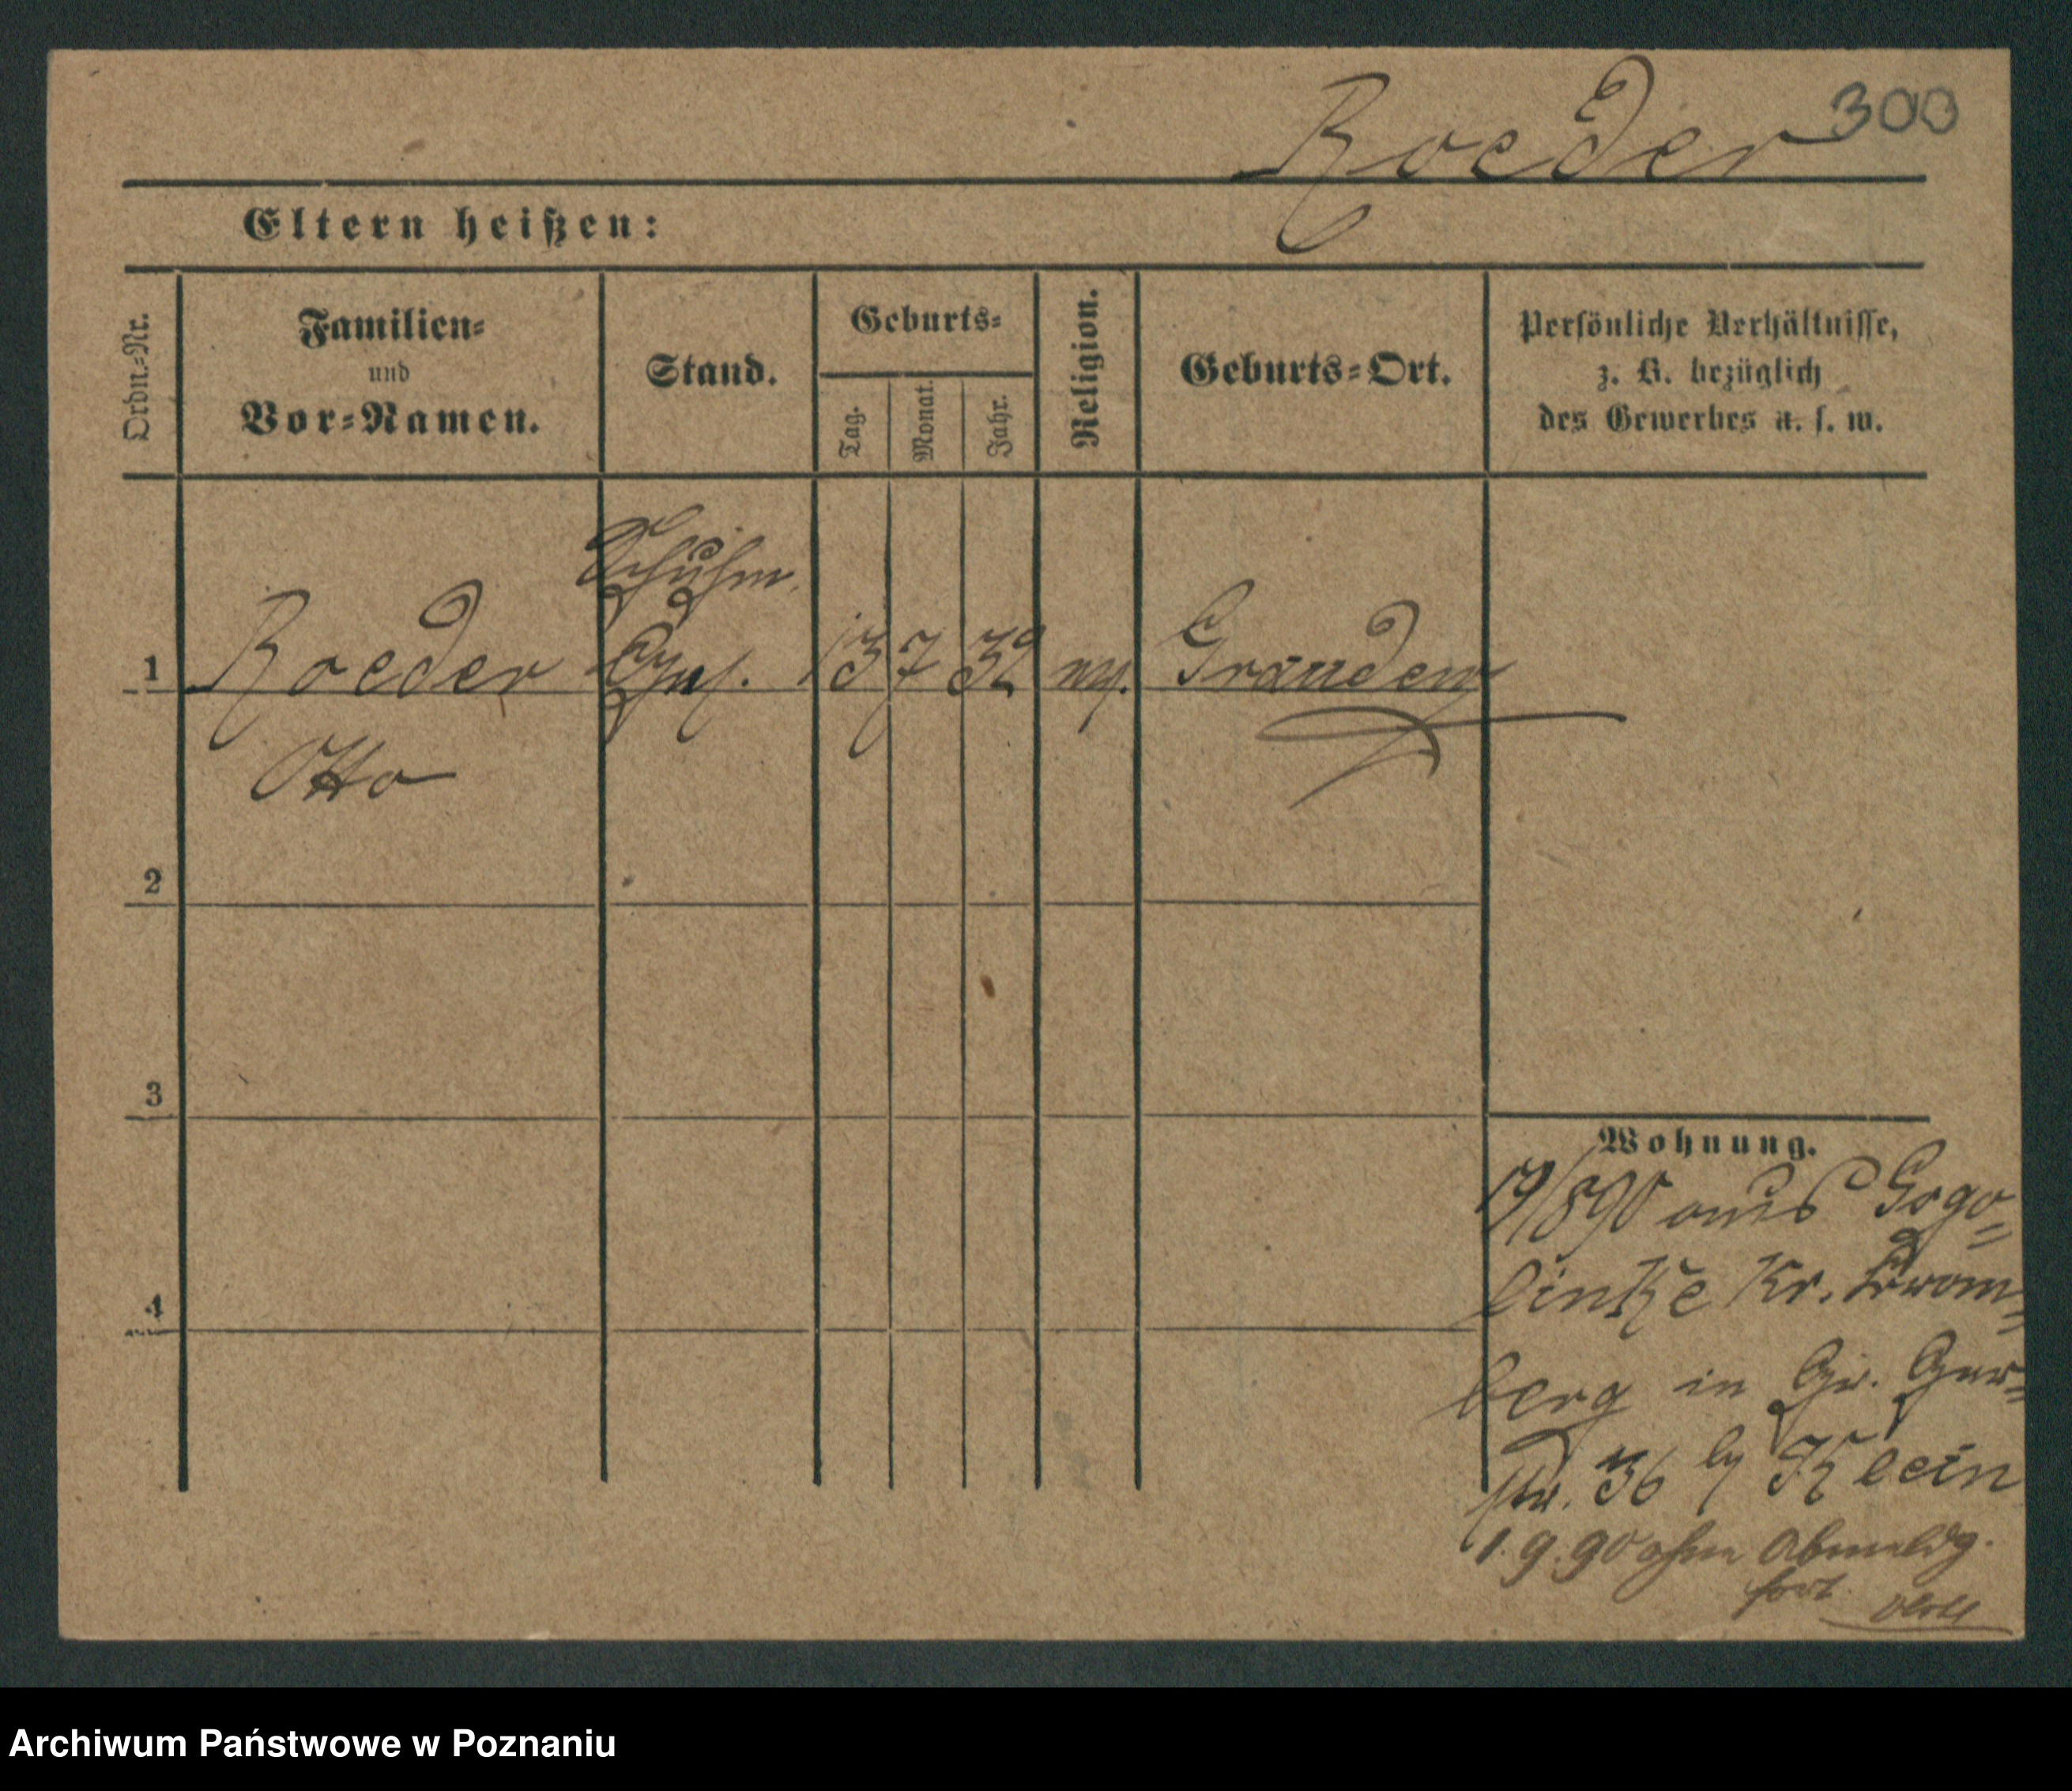 Roeder 300
Eltern heißen:
Ordn.=Nr.
Familien=
und
Vor=Namen.
Stand.
Geburts=
Tag.
Monat.
Jahr.
Religion.
Geburts=Ort.
Persönliche Verhältnisse,
z. B. bezüglich
des Gewerbes u. s. w.
Schuhm.
1 Roeder Ges. 13 7 32 Graudenz
Otto
2
3
4
Wohnung.
19/8 90 aus Gogo=
linke Kr. Brom=
berg in Gr. Ger=
str. 36 by Klein
1.9.90 ohne Abmeldg.
fort
Archiwum Państwowe w Poznaniu